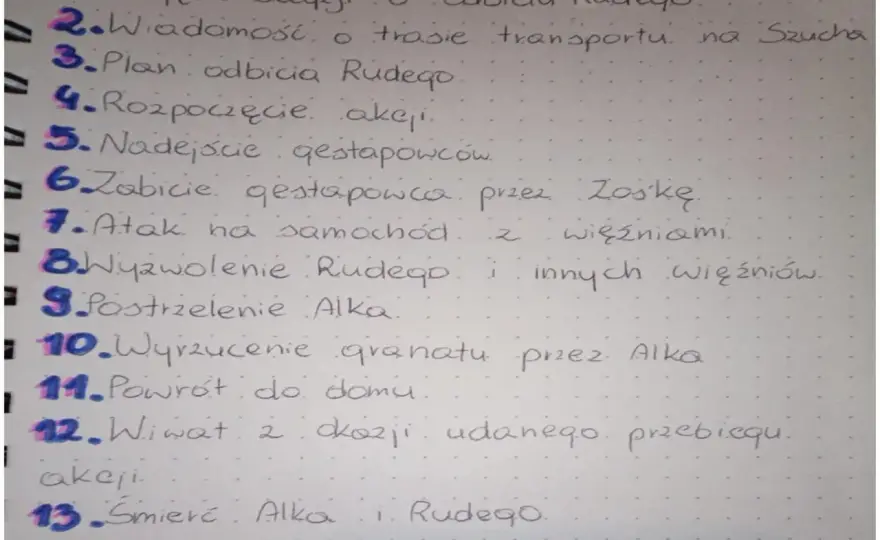 o odbiciu Rudego.
2. Wiadomość o trasie transportu na Szucha
3. Plan odbicia Rudego
4. Rozpoczęcie akcji.
5. Nadejście gestapowców
6. Zabicie gestapowca przez Zośkę
7. Atak na samochód z więźniami.
8. Wyzwolenie Rudego i innych więźniów.
9. Postrzelenie Alka.
10. Wyrzucenie granatu przez Alka
11. Powrót do domu.
12. Wiwat z okazji udanego przebiegu
akcji.
13. Śmierć Alka i Rudego.